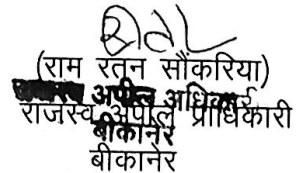 (राम रतन सौंकरिया)
अपील अधिकारी
राजस्व अपील प्राधिकारी
बीकानेर
बीकानेर